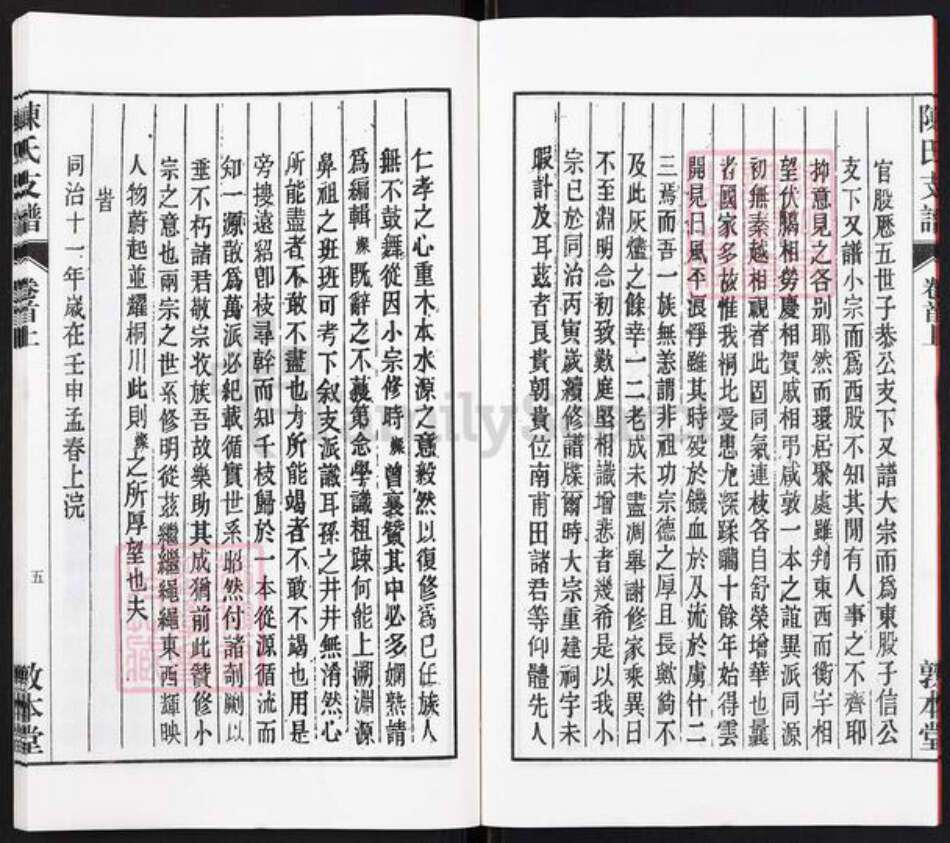 官股歷五世子恭公支下又譜大宗而爲東股子信公
支下又譜小宗而爲西股不知其閒有人事之不齊耶
抑意見之各别耶然而環居聚處雖判東西而衡宇相
望伏臘相勞慶相賀戚相弔咸敦一本之誼異派同源
初無秦越相視者此固同氣連枝各自舒榮增華也曩
者國家多故惟我桐北受患尤深蹂躪十餘年始得雲
開見日風平浪淨雖其時歿於饑血於刄流於虜什二
三焉而吾一族無恙謂非祖功宗德之厚且長歟緕不
及此灰燼之餘幸一二老成未盡凋舉謝修家乘異日
不至淵明念初致歎庭堅相識增悲者幾希是以我小
宗已於同治丙寅歲續修譜牒爾時大宗重建祠宇未
暇計及耳茲者艮貴朝貴位南甫田諸君等仰體先人
仁孝之心重木本水源之意毅然以復修爲已任族人
無不鼓舞從因小宗修時 曾襄贊其中必多嫻熟請
爲編輯 既辭之不獲第念學識粗踈何能上溯淵源
鼻祖之班班可考下叙支派識耳孫之井井無淆然心
所能盡者不敢不盡也力所能竭者不敢不竭也用是
旁搜遠紹卽枝尋幹而知千枝歸於一本從源循流而
知一源散爲萬派必紀載循實世系昭然付諸剞劂以
垂不朽諸君敬宗收族吾故樂助其成猶前此贊修小
宗之意也兩宗之世系修明從茲繼繼繩繩東西輝映
人物蔚起並耀桐川此則 之所厚望也夫
旹
同治十一年歲在壬申孟春上浣
陳氏支譜
卷首上
五
敦本堂
陳氏支譜
卷首上
敦本堂
FamilySearch